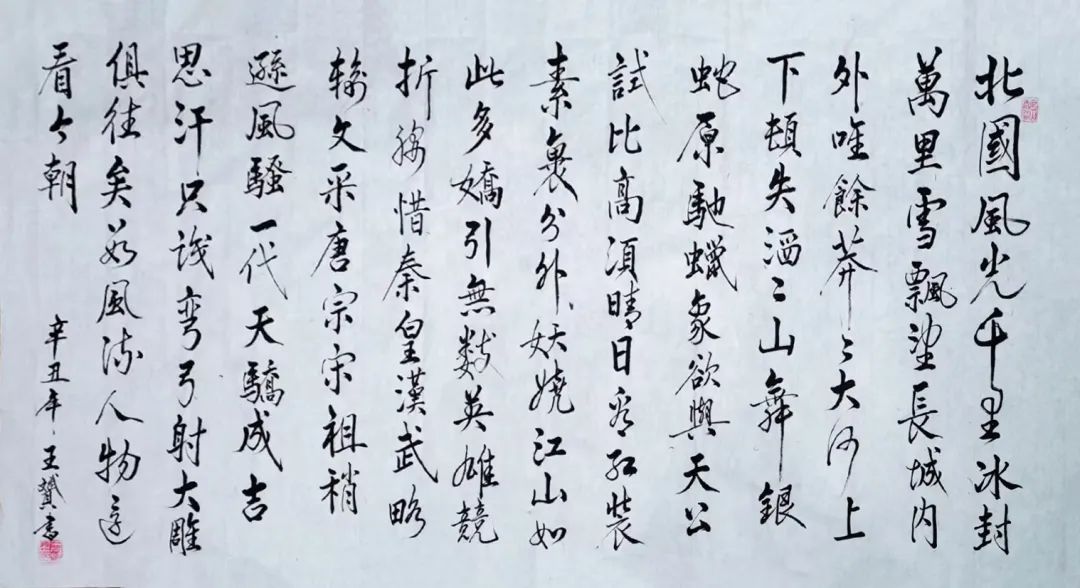 北國風光千里冰封
萬里雪飄望長城內
外唯餘莽〻大河上
下頓失滔〻山舞銀
蛇原馳蠟象欲與天公
試比高須晴日看紅裝
素裹分外妖嬈江山如
此多嬌引無數英雄競
折腰惜秦皇漢武略
輸文采唐宗宋祖稍
遜風騷一代天驕成吉
思汗只識弯弓射大雕
俱往矣數風流人物還
看今朝
辛丑年 王贊書